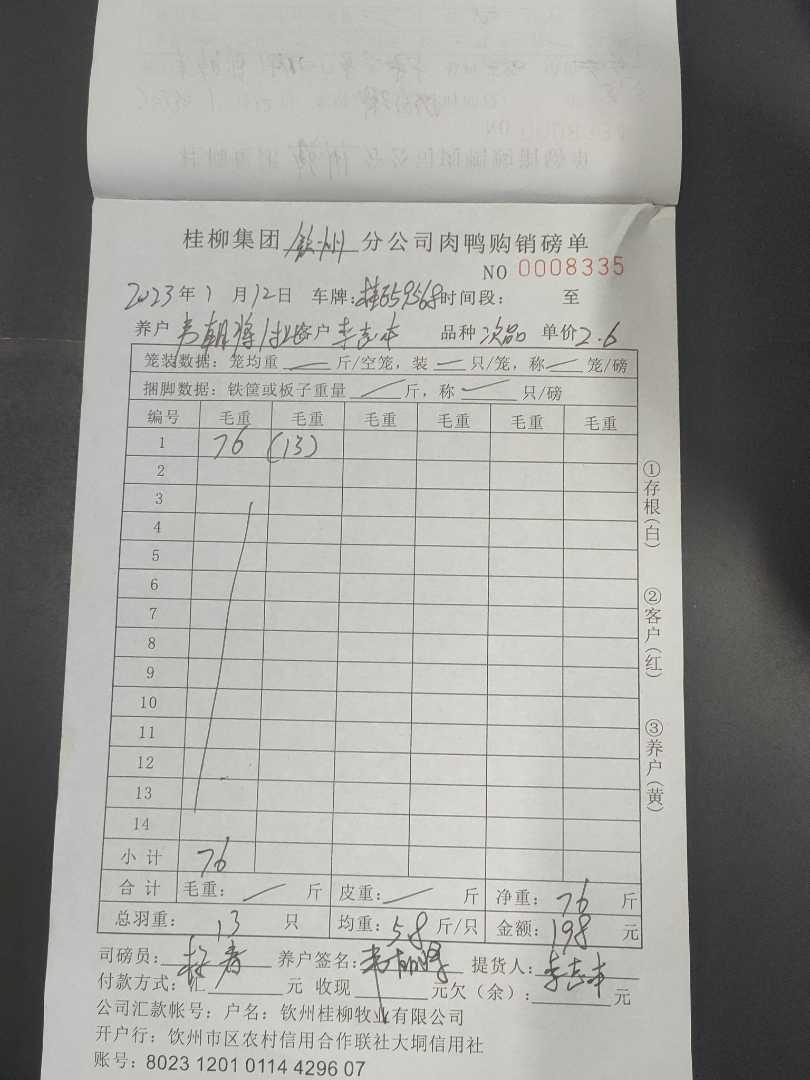 桂柳集团钦州分公司肉鸭购销磅单
NO 0008335
2023年1月12日 车牌:桂659568时间段: 至
养户 客户 李志本 品种 次品 单价2.6
笼装数据:笼均重 — 斤/空笼,装 — 只/笼,称 — 笼/磅
捆脚数据:铁筐或板子重量 — 斤,称 — 只/磅
编号 毛重 毛重 毛重 毛重 毛重 毛重
1 76 (13)
2
3
4
5
6
7
8
9
10
11
12
13
14
小计 76
合计 毛重: — 斤 皮重: — 斤 净重: 76 斤
总羽重: 13 只 均重: 5.8 斤/只 金额: 198 元
司磅员: 养户签名: 提货人: 李志本
付款方式:汇 元 收现 元欠(余): 元
公司汇款帐号:户名:钦州桂柳牧业有限公司
开户行:钦州市区农村信用合作联社大垌信用社
账号:8023 1201 0114 4296 07
①存根(白)
②客户(红)
③养户(黄)